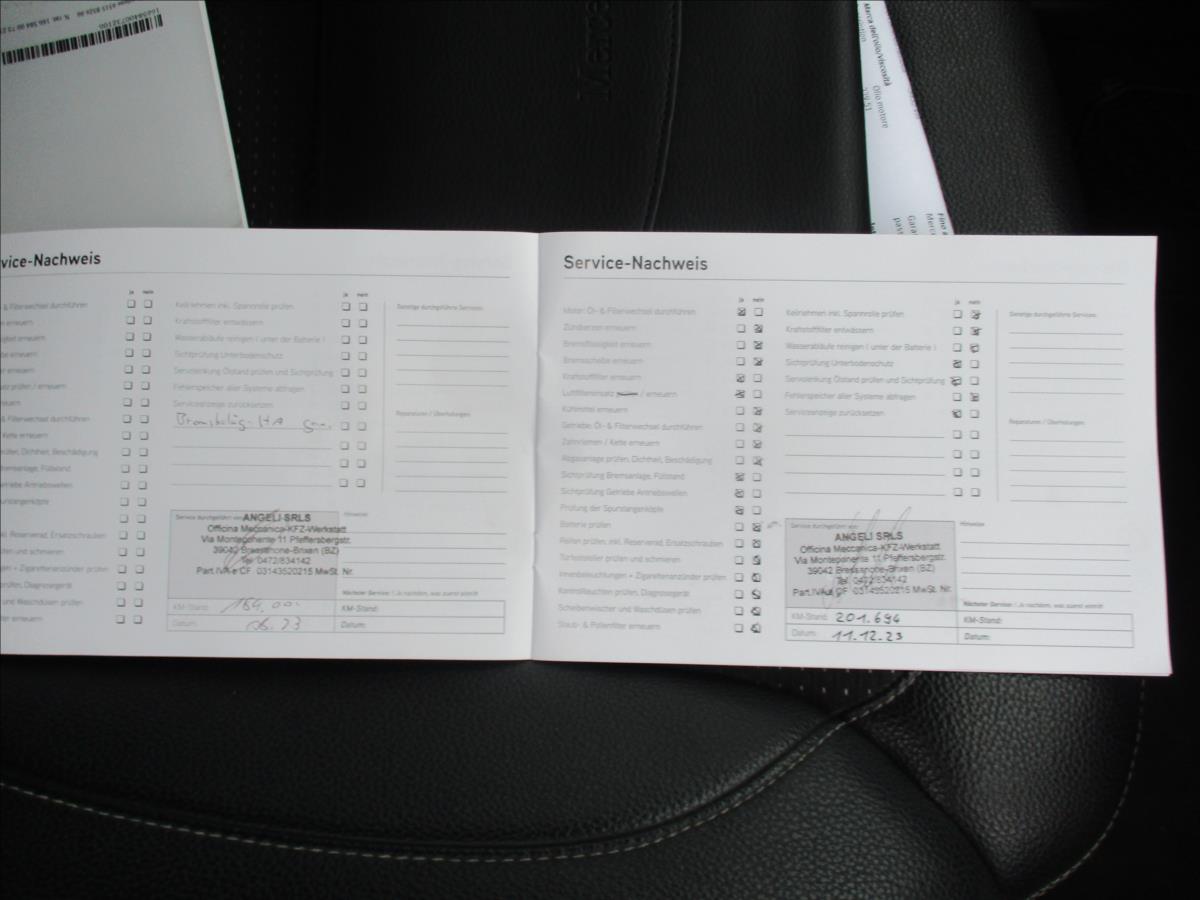 Merce
Marca dell'olio/viscosità
Olio motore
vice-Nachweis
ja nein
ja nein
& Filterwechsel durchführen
erneuern
erneuern
prüfen / erneuern
& Filterwechsel durchführen
Kette erneuern
prüfen, Dichtheit, Beschädigung
Bremsanlage, Füllstand
Getriebe Antriebswellen
Spurstangenköpfe
inkl. Reserverad, Ersatzschrauben
prüfen und schmieren
+ Zigarettenanzünder prüfen
prüfen, Diagnosegerät
und Waschdüsen prüfen
erneuern
Keilriehmen inkl. Spannrolle prüfen
Kraftstofffilter entwässern
Wasserabläufe reinigen ( unter der Batterie )
Sichtprüfung Unterbodenschutz
Servolenkung Ölstand prüfen und Sichtprüfung
Fehlerspeicher aller Systeme abfragen
Serviceanzeige zurücksetzen
Sonstige durchgeführte Services:
Reparaturen / Überholungen:
Service durchgeführt von:
ANGELI SRLS
Officina Meccanica-KFZ-Werkstatt
Via Monteponente 11 Pfeffersbergstr.
39042 Bressanone-Brixen (BZ)
Tel. 0472/834142
Part.IVA e CF 03143520215 MwSt. Nr.
Hinweise:
Nächster Service: ( Je nachdem, was zuerst eintritt
KM-Stand:
KM-Stand:
Datum: 06.23
Datum:
Service-Nachweis
ja nein
ja nein
Motor: Öl- & Filterwechsel durchführen
Zündkerzen erneuern
Bremsflüssigkeit erneuern
Bremsscheibe erneuern
Kraftstofffilter erneuern
Luftfiltereinsatz / erneuern
Kühlmittel erneuern
Getriebe: Öl- & Filterwechsel durchführen
Zahnriemen / Kette erneuern
Abgasanlage prüfen, Dichtheit, Beschädigung
Sichtprüfung Bremsanlage, Füllstand
Sichtprüfung Getriebe Antriebswellen
Prüfung der Spurstangenköpfe
Batterie prüfen
Reifen prüfen, inkl. Reserverad, Ersatzschrauben
Türfeststeller prüfen und schmieren
Innenbeleuchtungen + Zigarettenanzünder prüfen
Kontrollleuchten prüfen, Diagnosegerät
Scheibenwischer und Waschdüsen prüfen
Staub- & Pollenfilter erneuern
Keilriehmen inkl. Spannrolle prüfen
Kraftstofffilter entwässern
Wasserabläufe reinigen ( unter der Batterie )
Sichtprüfung Unterbodenschutz
Servolenkung Ölstand prüfen und Sichtprüfung
Fehlerspeicher aller Systeme abfragen
Serviceanzeige zurücksetzen
Sonstige durchgeführte Services:
Reparaturen / Überholungen:
Service durchgeführt von:
ANGELI SRLS
Officina Meccanica-KFZ-Werkstatt
Via Monteponente 11 Pfeffersbergstr.
39042 Bressanone-Brixen (BZ)
Tel. 0472/834142
Part.IVA e CF 03143520215 MwSt. Nr.
Hinweise:
Nächster Service: ( Je nachdem, was zuerst eintritt
KM-Stand: 201.694
KM-Stand:
Datum: 11.12.23
Datum: